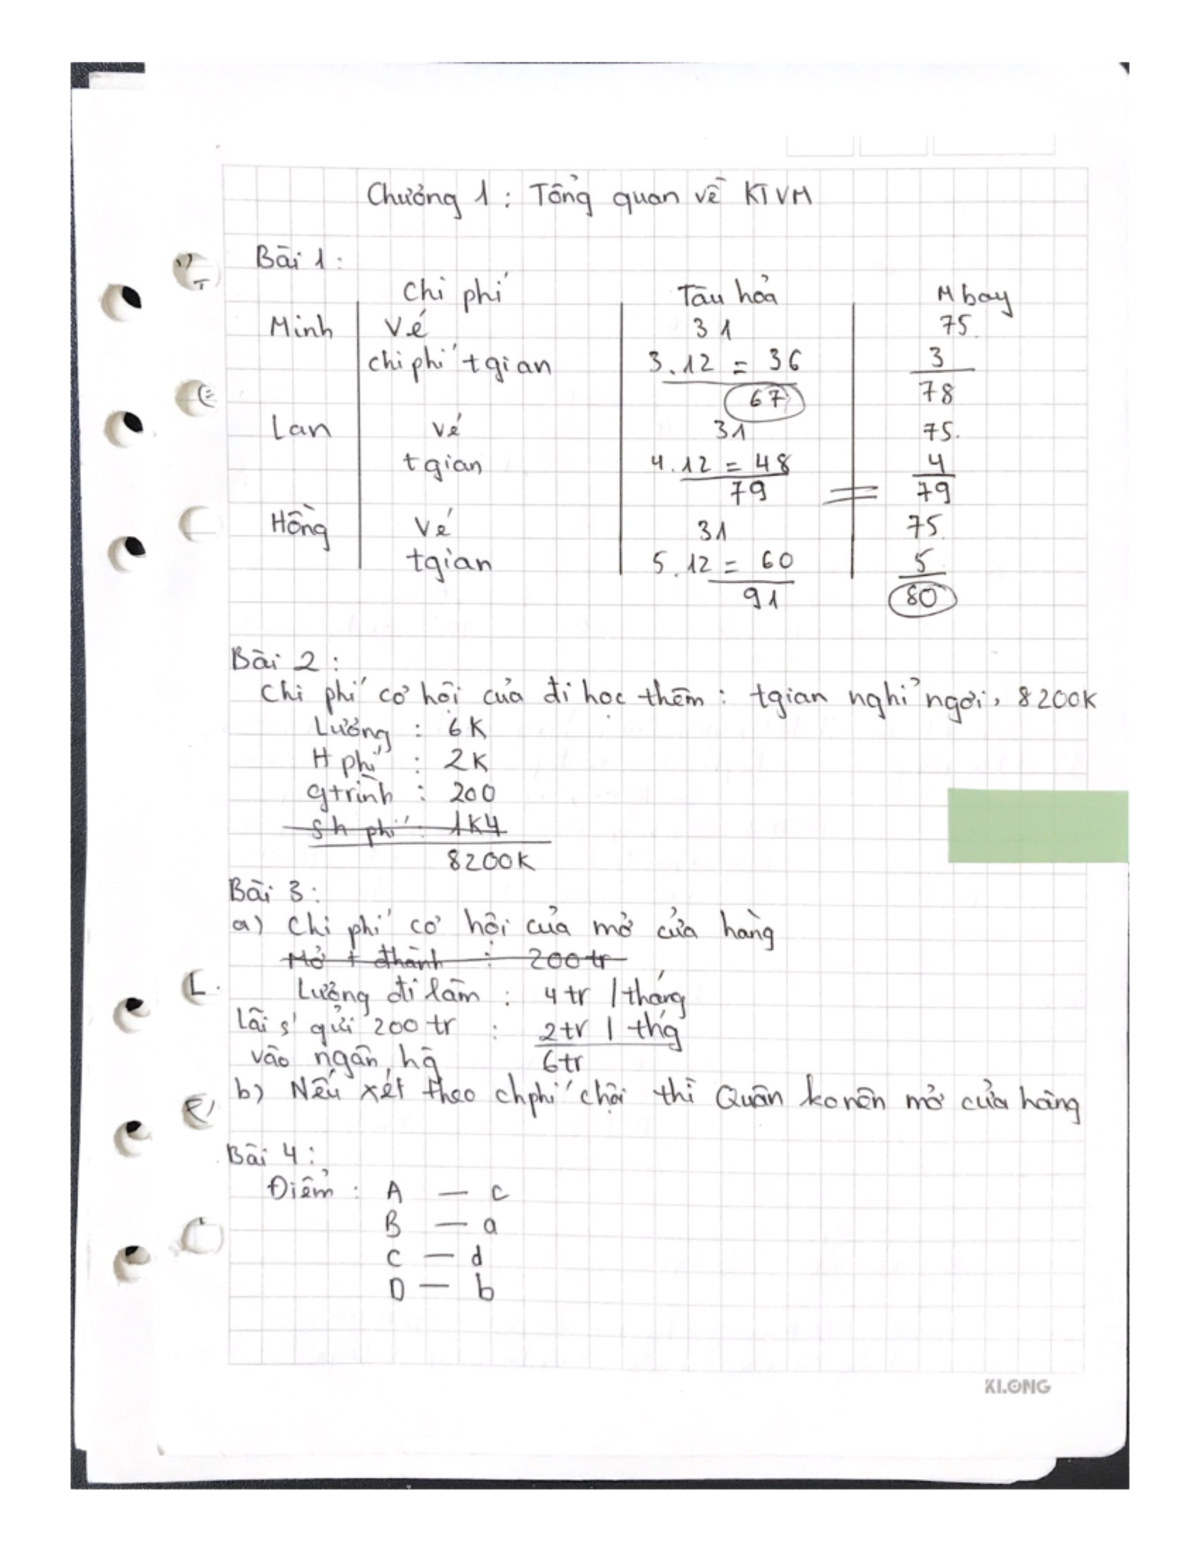 Chương 1 : Tổng quan về KTVM
Bài 1 :
Chi phí Tàu hỏa M bay
Minh Vé 31 75
chi phí tgian 3.12 = 36 3
67 78
Lan vé 31 75.
tgian 4.12 = 48 4
79 = 79
Hồng Vé 31 75
tgian 5.12 = 60 5
91 80
Bài 2 :
Chi phí cơ hội của đi học thêm : tgian nghỉ ngơi, 8200K
Lương : 6K
H phí : 2K
gtrình : 200
Sh phí : 1K4
8200K
Bài 3 :
a) Chi phí cơ hội của mở cửa hàng
Mở + thành : 200tr
Lương đi làm : 4tr / tháng
Lãi s' gửi 200 tr : 2tr / thg
vào ngân hg 6tr
b) Nếu xét theo chphí chội thì Quân ko nên mở cửa hàng
Bài 4 :
Điểm : A — c
B — a
C — d
D — b
KLONG